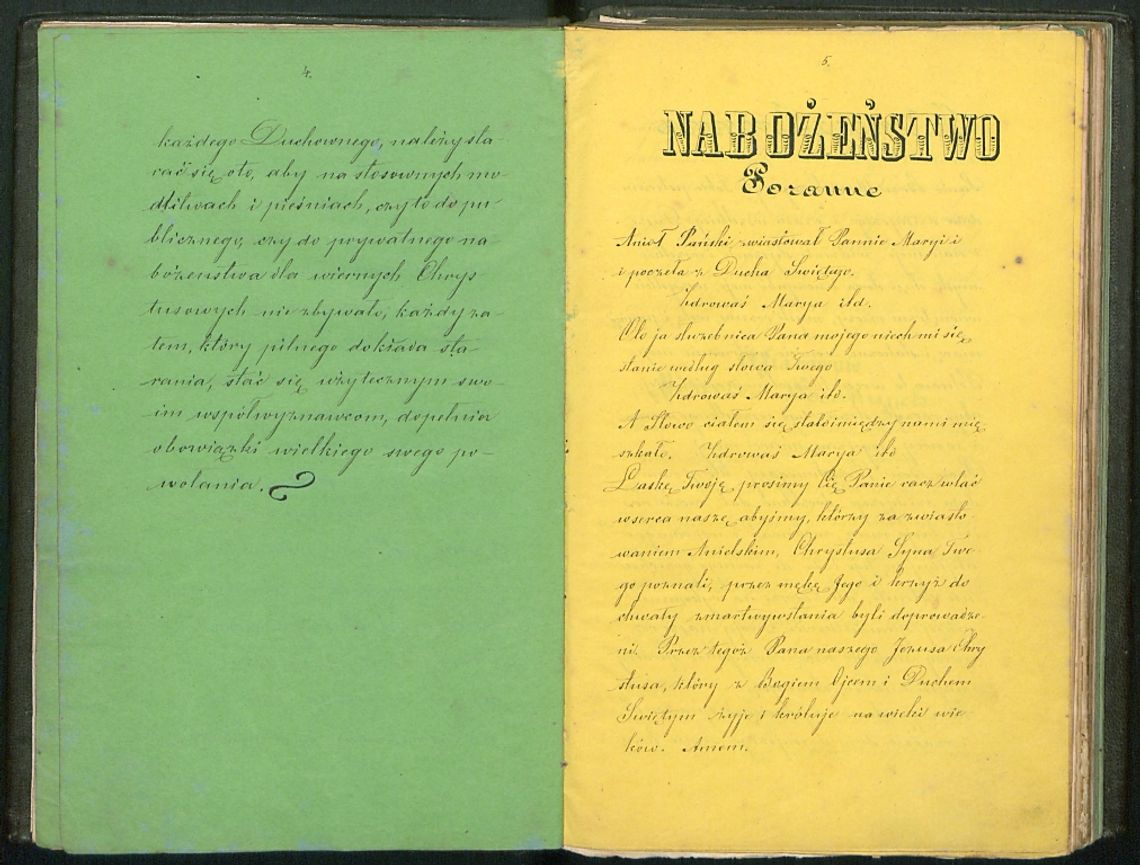 4.
każdego Duchownego, należy sta
rać się oto, aby na stosownych mo-
dlitwach i pieśniach, czy to do pu-
blicznego, czy do prywatnego na-
bożeństwa dla wiernych Chrys-
tusowych nie zbywało, każdy za-
tem, który pilnego dokłada sta-
rania, stać się użytecznym swo-
im współwyznawcom, dopełnia
obowiązki wielkiego swego po-
wołania.
5.
NABOŻEŃSTWO
Poranne
Anioł Pański zwiastował Pannie Maryi i
i poczęła z Ducha Swiętego.
Zdrowaś Marya itd.
Oto ja służebnica Pana mojego niech mi się
stanie według słowa Twego
Zdrowaś Marya itd.
A Słowo ciałem się stało i między nami mię
szkało. Zdrowaś Marya itd
Łaskę Twoję prosimy Cię Panie racz wlać
w serca nasze, abyśmy, którzy za zwiasto-
waniem Anielskim, Chrystusa Syna Twe-
go poznali, przez mękę Jego i krzyż do
chwały zmartwywstania byli doprowadze-
ni. Przez tegóż Pana naszego Jezusa Chry
stusa, który z Bogiem Ojcem i Duchem
Swiętym żyje i króluje na wieki wie
ków. Amem.